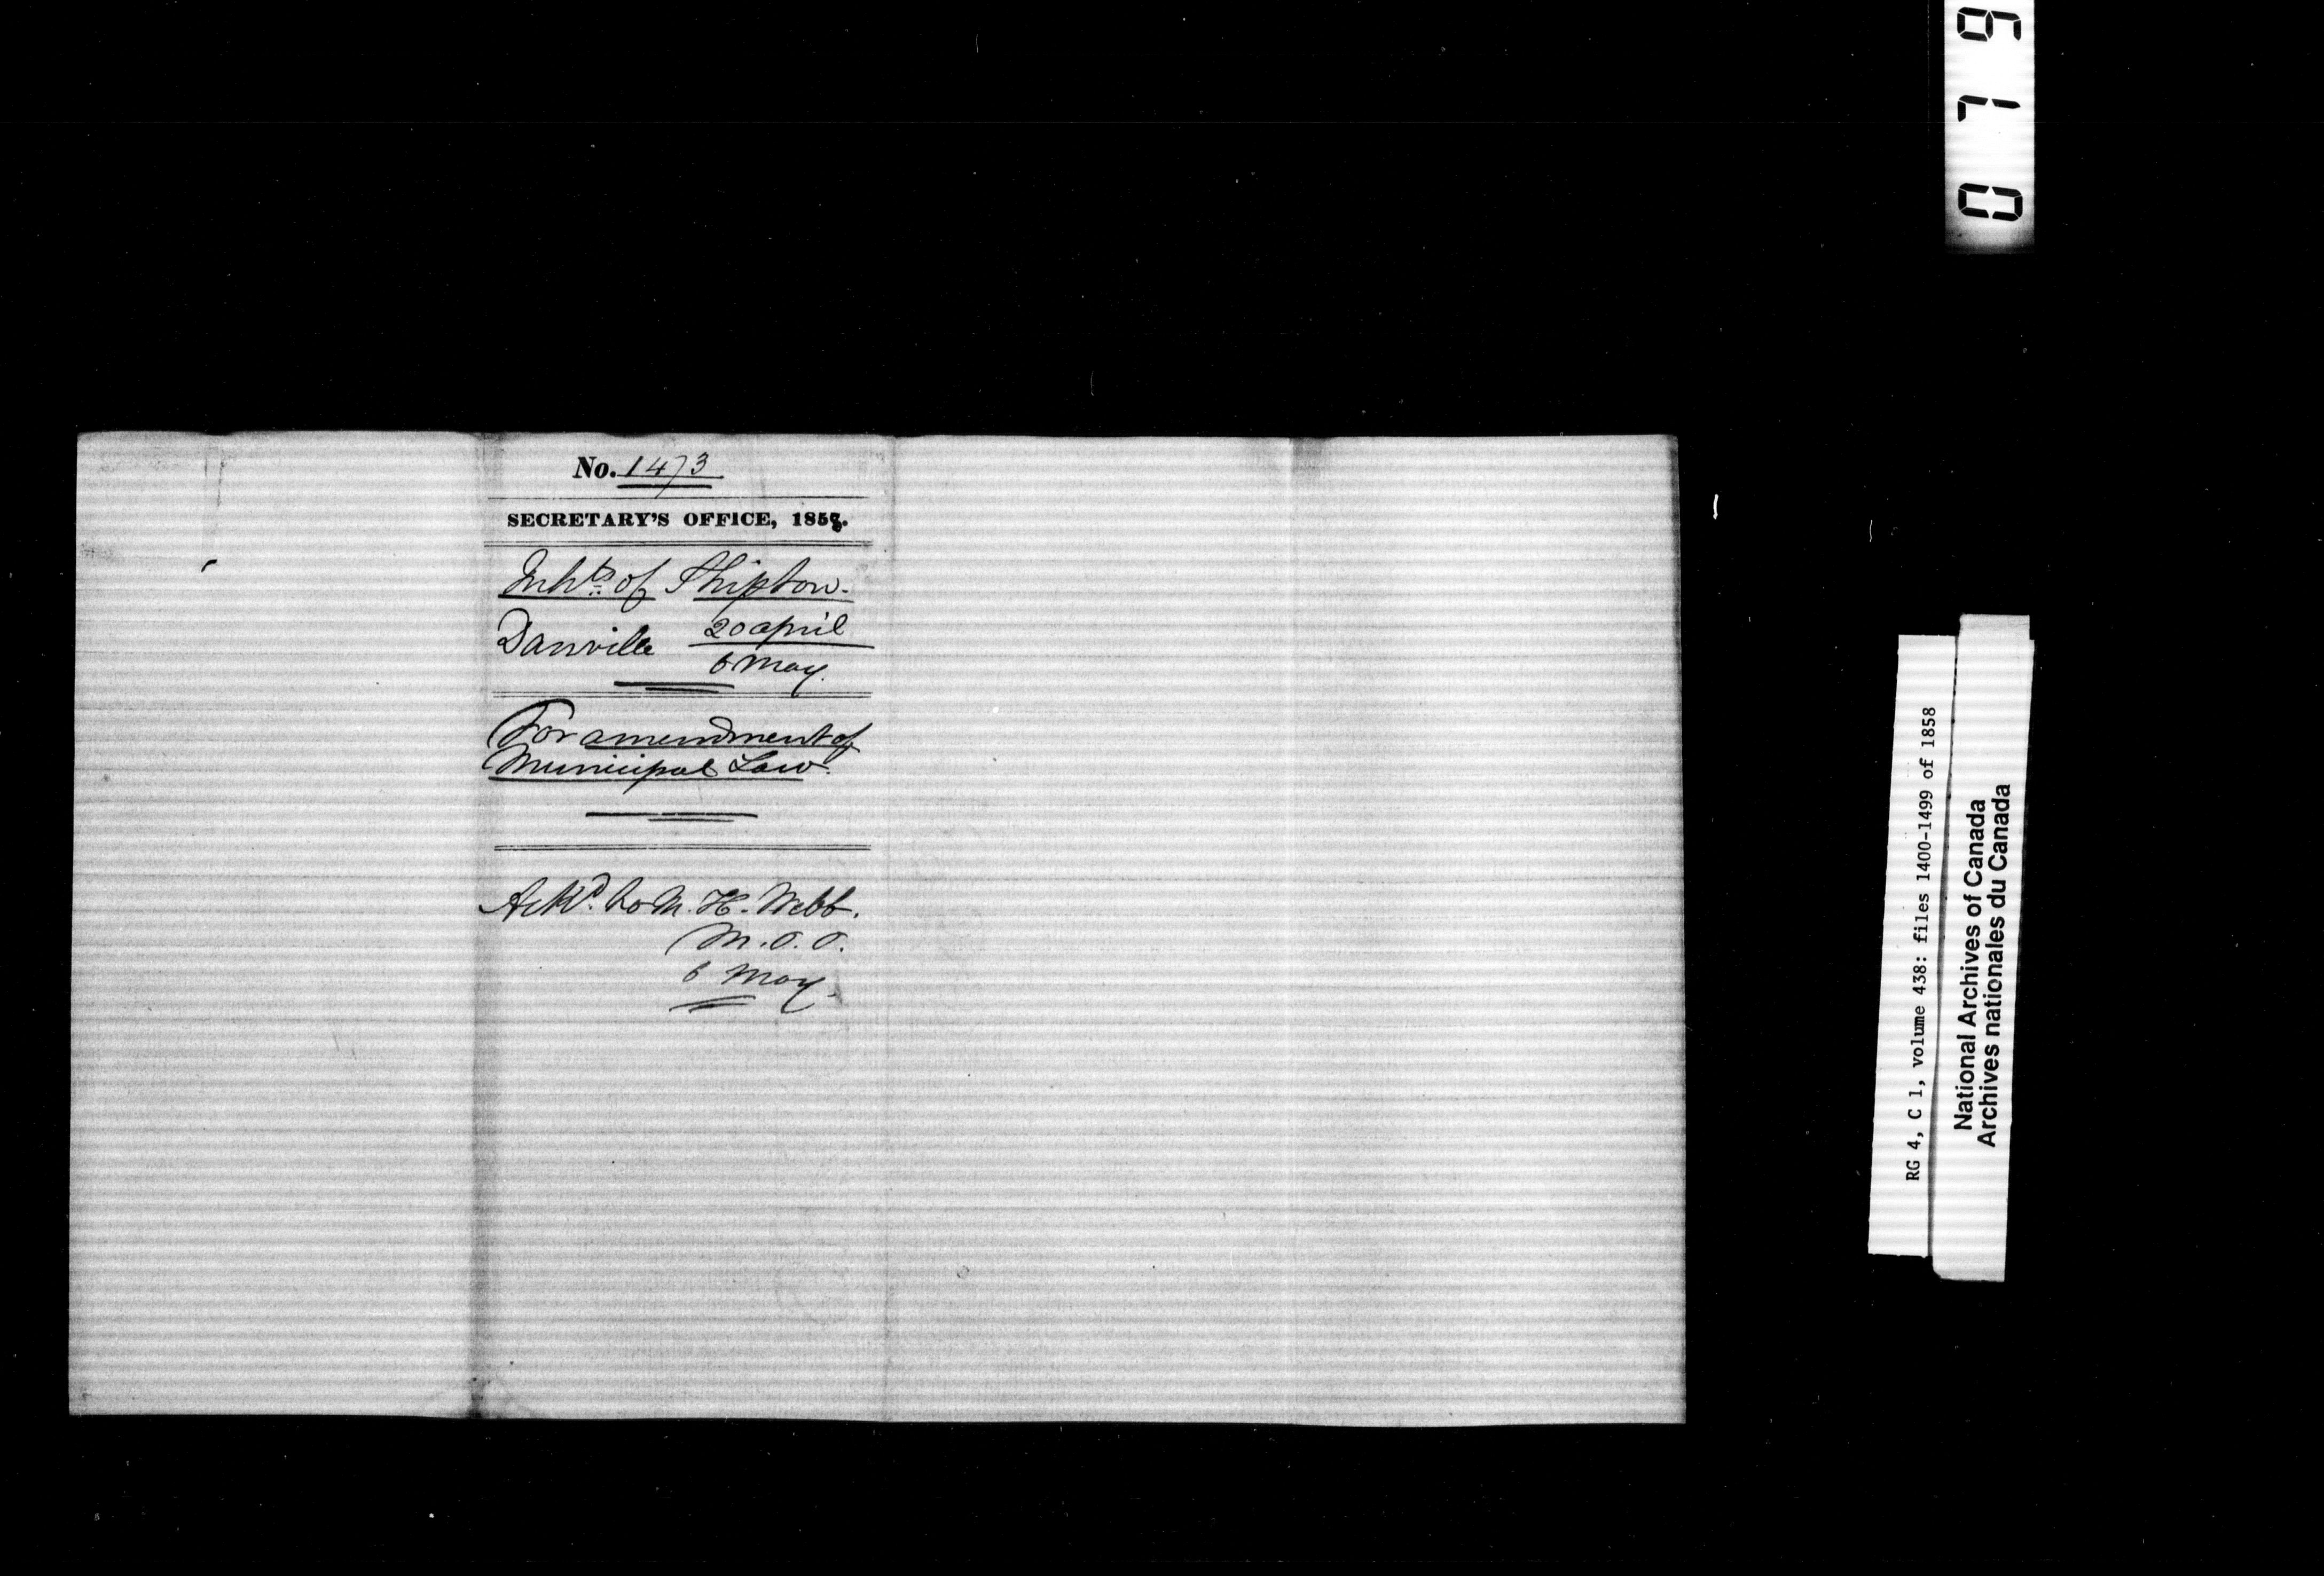 No. 1473
SECRETARY'S OFFICE, 1858.
Inhts. of Shipton.
Danville 20 april
6 May.
For amendment of
Municipal Law.
Ackd. to M. H. Webb.
6 May.
0 7 9
RG 4, C 1, volume 438: files 1400-1499 of 1858
National Archives of Canada
Archives nationales du Canada